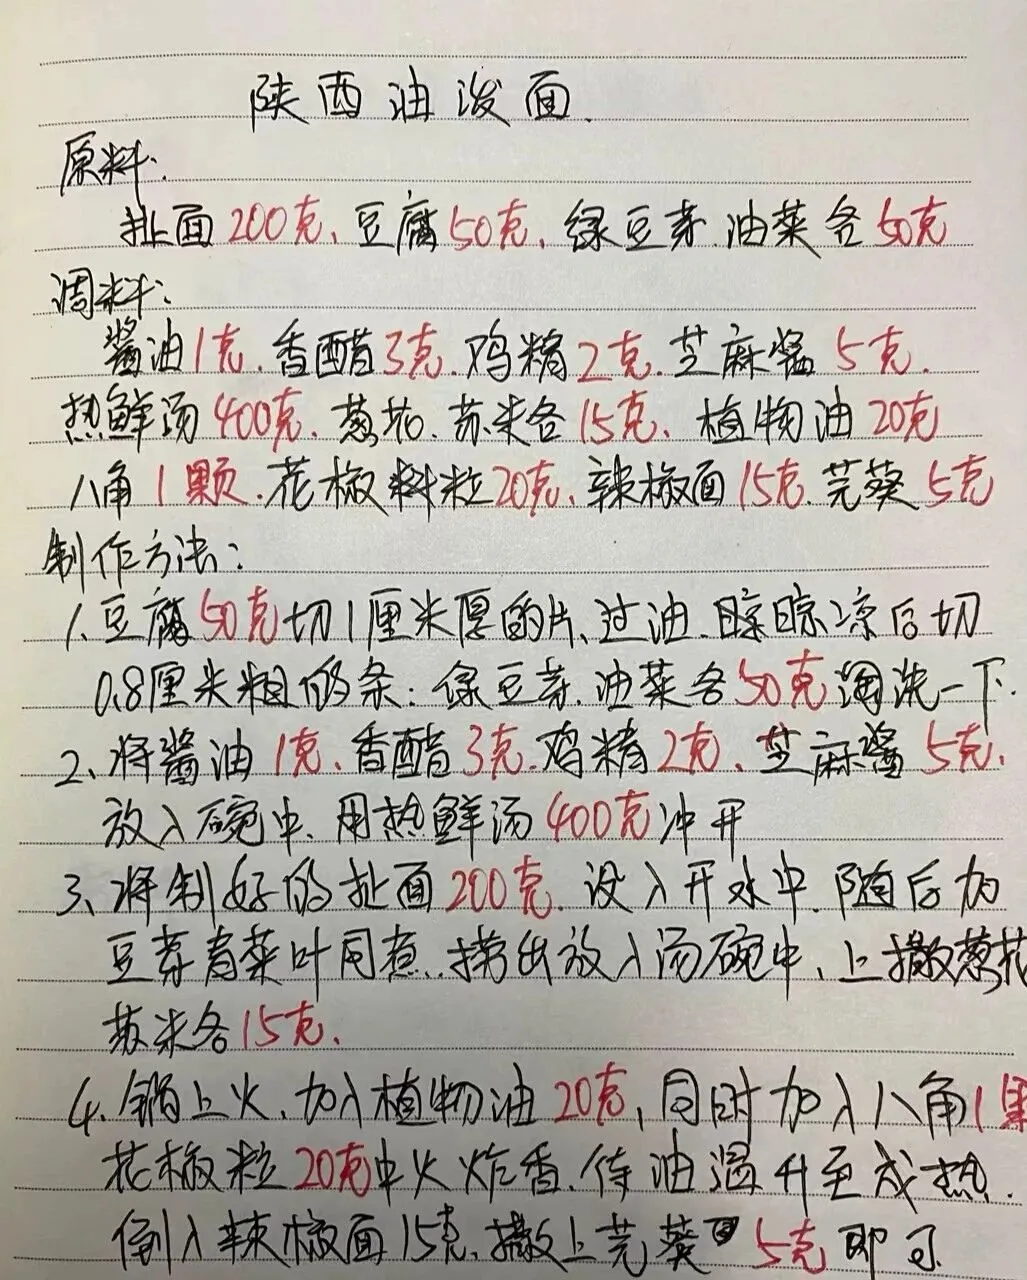 陕西油泼面.
原料:
扯面200克、豆腐50克、绿豆芽.油菜各50克
调料:
酱油1克.香醋3克.鸡精2克.芝麻酱5克.
热鲜汤400克.葱花.苏米各15克、植物油20克
八角1颗.花椒料粒20克、辣椒面15克.芫荽5克
制作方法:
1.豆腐50克切1厘米厚的片、过油.晾晾凉后切
0.8厘米粗的条:绿豆芽.油菜各50克淘洗一下.
2、将酱油1克.香醋3克.鸡精2克、芝麻酱5克.
放入碗中.用热鲜汤400克冲开
3、将制好的扯面200克.没入开水中.随后加
豆芽青菜叶同煮.捞出放入汤碗中、上撒葱花
苏米各15克.
4.锅上火、加入植物油20克,同时加入八角1颗
花椒粒20克中火炸香.待油温升至成热.
倒入辣椒面15克.撒上芫荽5克即可